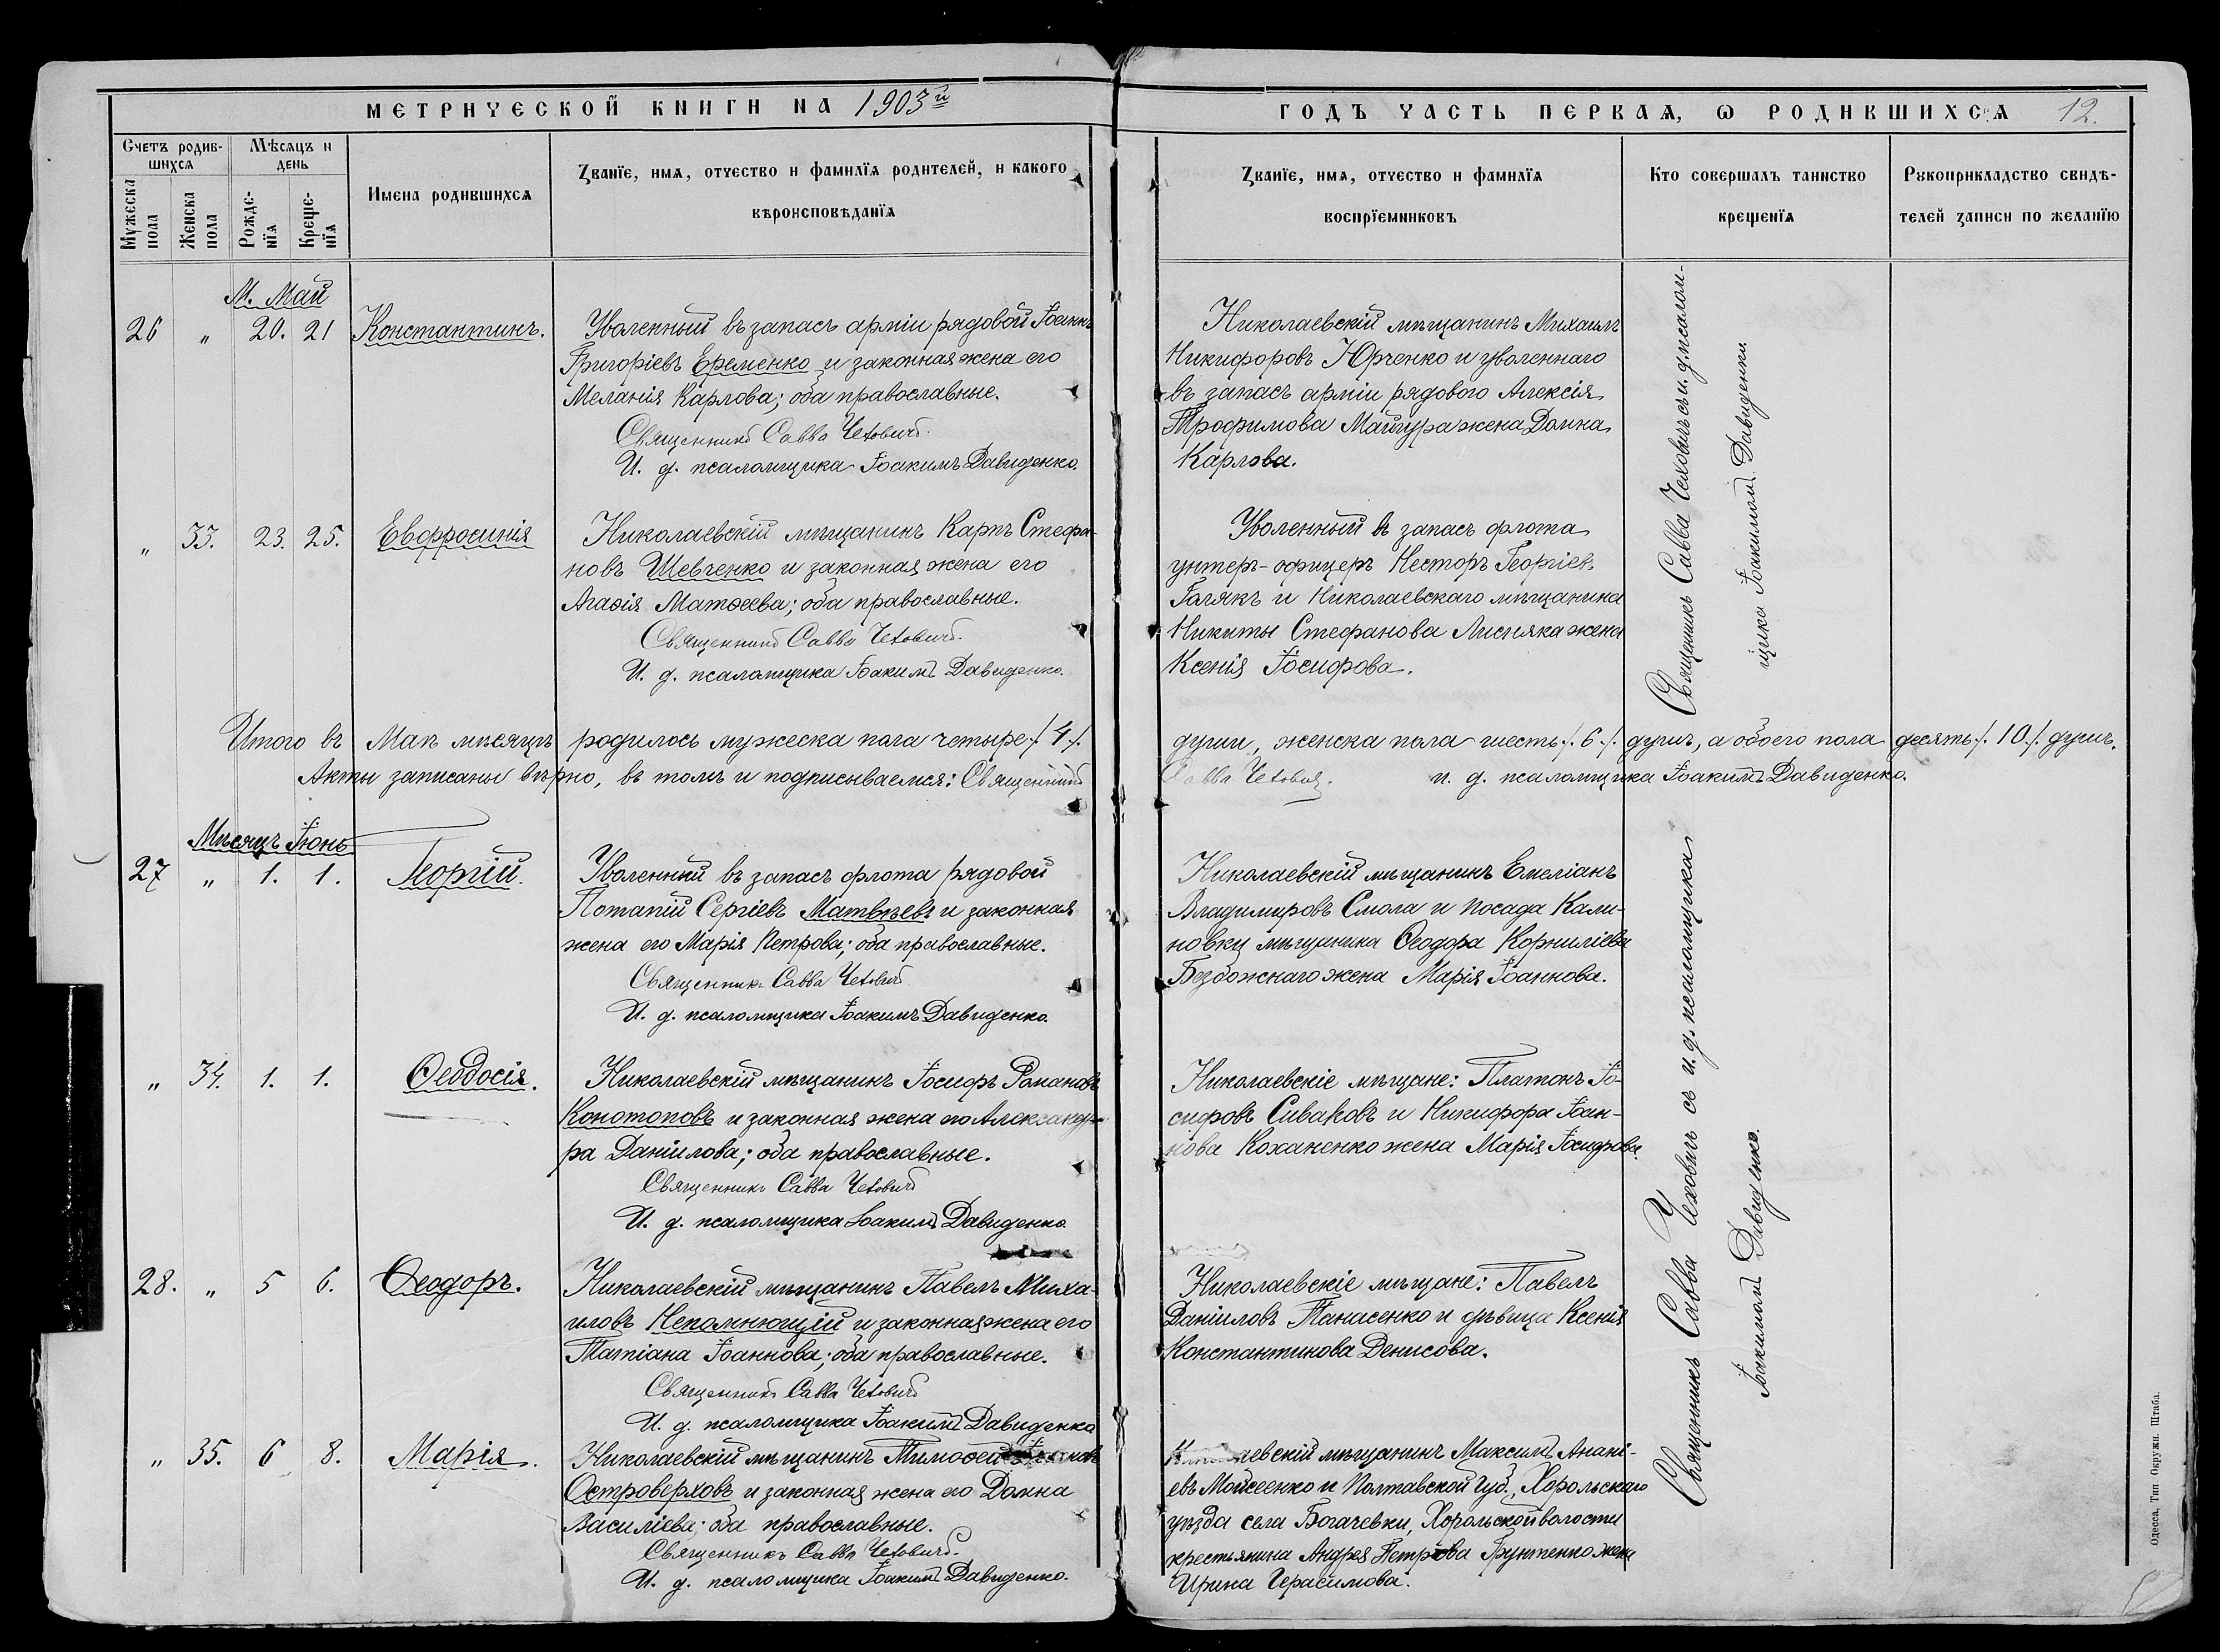 МЕТРИЧЕСКОЙ КНИГИ НА 1903й
ГОДЪ ЧАСТЬ ПЕРВАЯ, Ѡ РОДИВШИХСЯ 12.
Счетъ родив-
шихся
Мѣсяцъ и
день
Мужеска
пола
Женска
пола
Рожде-
нія
Креще-
нія
Имена родившихся
Званіе, имя, отчество и фамилія родителей, и какого
вѣроисповѣданія
Званіе, имя, отчество и фамилія
воспріемниковъ
Кто совершалъ таинство
крещенія
Рукоприкладство свидѣ-
телей записи по желанію
М. Май
26 " 20. 21 Константинъ.
Уволенный въ запасъ арміи рядовой Іоаннъ
Григоріевъ Еременко и законная жена его
Меланія Карлова; оба православные.
Священникъ Савва Чеховичъ.
И. д. псаломщика Іоакимъ Давиденко.
Николаевскій мѣщанинъ Михаилъ
Никифоровъ Юрченко и уволеннаго
въ запасъ арміи рядового Алексія
Трофимова Майгура жена Домна
Карлова.
Священникъ Савва Чеховичъ съ и. д. псалом-
щика Іоакимомъ Давиденко
" 33. 23. 25. Евфросинія
Николаевскій мѣщанинъ Карпъ Стефа-
новъ Шевченко и законная жена его
Агафія Матѳеева; оба православные.
Священникъ Савва Чеховичъ.
И. д. псаломщика Іоакимъ Давиденко.
Уволенный въ запасъ флота
унтеръ-офицеръ Несторъ Георгіев.
Гагякъ и Николаевскаго мѣщанина
Никиты Стефанова Лисняка жена
Ксенія Іосифова.
Итого въ Маѣ мѣсяцѣ родилось мужеска пола четыре ./. 4 ./. души, женска пола шесть ./. 6 ./. душъ, а обоего пола десять ./. 10 ./. душъ.
Акты записаны вѣрно, въ томъ и подписываемся: Священникъ Савва Чеховичъ. и. д. псаломщика Іоакимъ Давиденко.
Мѣсяцъ Іюнь
27 " 1. 1. Георгій.
Уволенный въ запасъ флота рядовой
Потапій Сергіевъ Матвѣевъ и законная
жена его Марія Петрова; оба православные.
Священникъ Савва Чеховичъ
И. д. псаломщика Іоакимъ Давиденко.
Николаевскій мѣщанинъ Емеліанъ
Владимировъ Смола и посада Кали-
новки мѣщанина Ѳеодора Корниліева
Безбожнаго жена Марія Іоаннова.
Священникъ Савва Чеховичъ съ и. д. псаломщика
Іоакимомъ Давиденко.
" 34. 1. 1. Ѳеодосія.
Николаевскій мѣщанинъ Іосифъ Романовъ
Конотоповъ и законная жена его Александ-
ра Даніилова; оба православные.
Священникъ Савва Чеховичъ
И. д. псаломщика Іоакимъ Давиденко
Николаевскіе мѣщане: Платонъ Іо-
сифовъ Сиваковъ и Никифора Іоан-
нова Коханенко жена Марія Іосифова.
28. " 5 6. Ѳеодоръ.
Николаевскій мѣщанинъ Павелъ Миха-
иловъ Непомнющій и законная жена его
Татіана Іоаннова; оба православные.
Священникъ Савва Чеховичъ
И. д. псаломщика Іоакимъ Давиденко
Николаевскіе мѣщане: Павелъ
Даніиловъ Панасенко и дѣвица Ксенія
Константинова Денисова.
" 35. 6 8. Марія.
Николаевскій мѣщанинъ Тимоѳей
Островерховъ и законная жена его Домна
Василіева; оба православные.
Священникъ Савва Чеховичъ.
И. д. псаломщика Іоакимъ Давиденко.
Николаевскій мѣщанинъ Максимъ Анані-
евъ Мойсеенко и Полтавской губ., Хорольскаго
уѣзда села Богачевки, Хорольской волости
крестьянина Андрея Петрова Грунтенко жена
Ирина Герасимова.
Одесса. Тип. Окружн. Штаба.